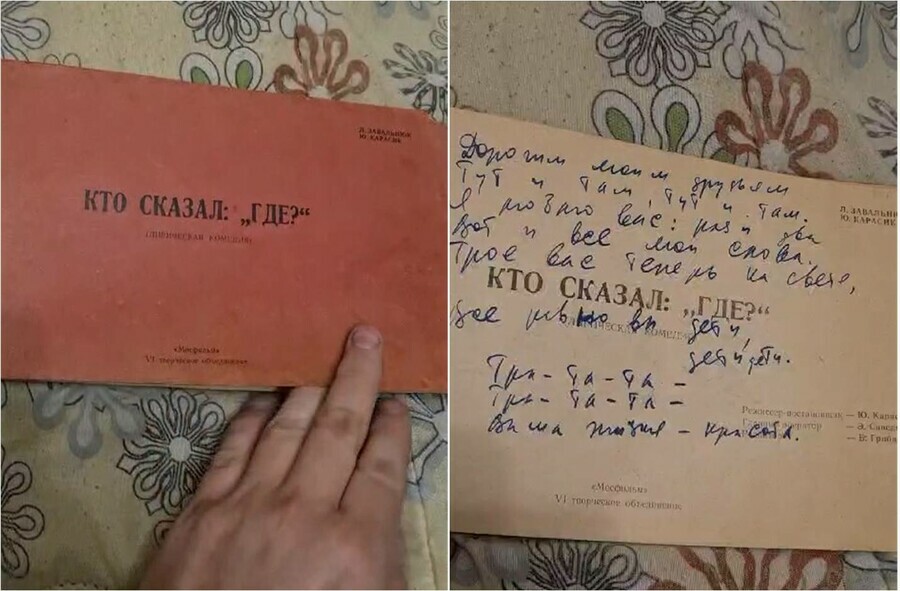 Л. ЗАВАЛЬНЮК
Ю. КАРАСИК
КТО СКАЗАЛ: „ГДЕ?“
(ЛИРИЧЕСКАЯ КОМЕДИЯ)
«Мосфильм»
VI творческое объединение
Дорогим моим друзьям
Тут и там, тут и там.
Я позвал вас: раз и два
Вот и все мои слова.
Трое вас теперь на свете,
Л. ЗАВАЛЬНЮ
Ю. КАРАСИК
КТО СКАЗАЛ: „ГДЕ?“
КОМЕДИЯ
Все равно вы дети,
дети, дети.
Тра-та-та-
Тра-та-та-
Ваша жизнь - красота.
Режиссер-постановщик — Ю. Кара
оператор — Э. Саве
— В. Гриб
«Мосфильм»
VI творческое объединение